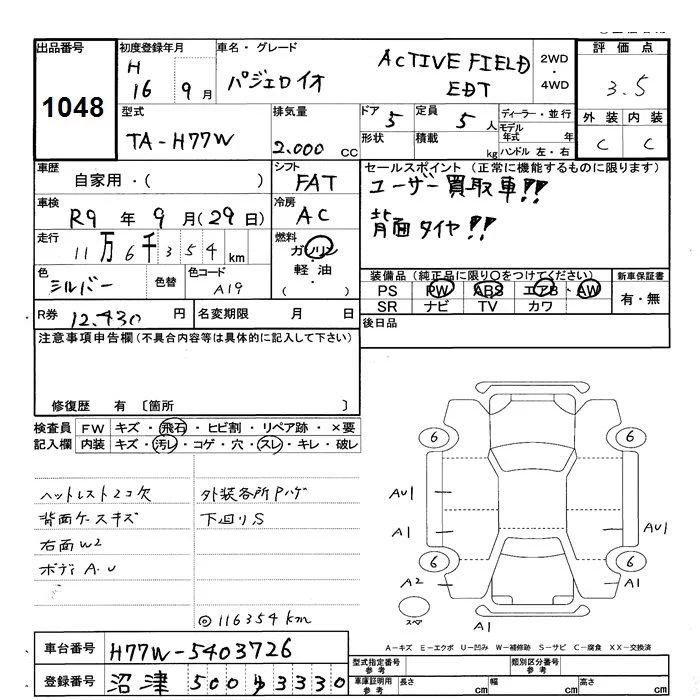 出品番号
1048
初度登録年月
H
16 9月
車名・グレード
パジェロイオ
ACTIVE FIELD
EDT
2WD
・
4WD
評価点
3.5
外装 内装
C C
型式
TA-H77W
排気量
2.000 CC
ドア 5
形状
定員 5人
積載 kg
ディーラー・並行
モデル年式 年
ハンドル 左・右
車歴
自家用・( )
シフト
FAT
車検
R9年9月(29日)
冷房
AC
走行
11万6千354km
燃料
ガソリン
軽油
( )
色
シルバー
色替
色コード
A19
R券 12.430円
名変期限 月 日
セールスポイント (正常に機能するものに限ります)
ユーザー買取車!!
背面タイヤ!!
装備品(純正品に限り○をつけてください)
PS PW ABS エアB AW
SR ナビ TV カワ
新車保証書
有・無
後日品
注意事項申告欄(不具合内容等は具体的に記入して下さい)
修復歴 有 〔箇所 〕
検査員記入欄
FW キズ・飛石・ヒビ割・リペア跡・×要
内装 キズ・汚レ・コゲ・穴・スレ・キレ・破レ
ヘットレスト2コ欠
背面ケースキズ
右面W2
ボディA.U
外装各所Pハゲ
下回りS
◎116354km
6 6
AU1
A1
AU1
6 6
A2 A1
スペア
A1
A-キズ E-エクボ U-凹み W-補修跡 S-サビ C-腐食 XX-交換済
車台番号 H77W-5403726
登録番号 沼津 500 ゆ 3330
型式指定番号
参考
類別区分番号
参考
車庫証明用
参考
長さ cm 幅 cm 高さ cm